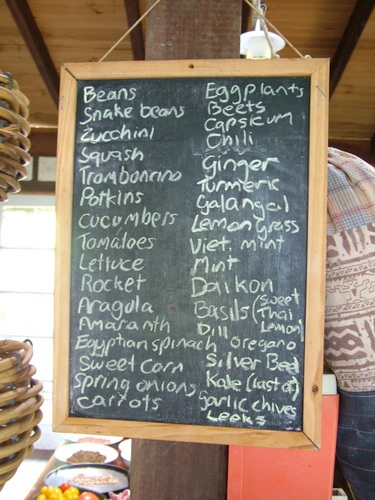 Beans
Snake beans
Zucchini
Squash
Trombonenino
Potkins
Cucumbers
Tomatoes
Lettuce
Rocket
Aragula
Amaranth
Egyptian spinach
Sweet corn
Spring onions
Carrots
Eggplants
Beets
Capsicum
Chili
Ginger
Turmeric
Galangal
Lemon Grass
Viet. mint
Mint
Daikon
Basils (sweet
Thai
Lemon)
Dill
Oregano
Silver Beet
Kale (last of)
garlic chives
Leeks